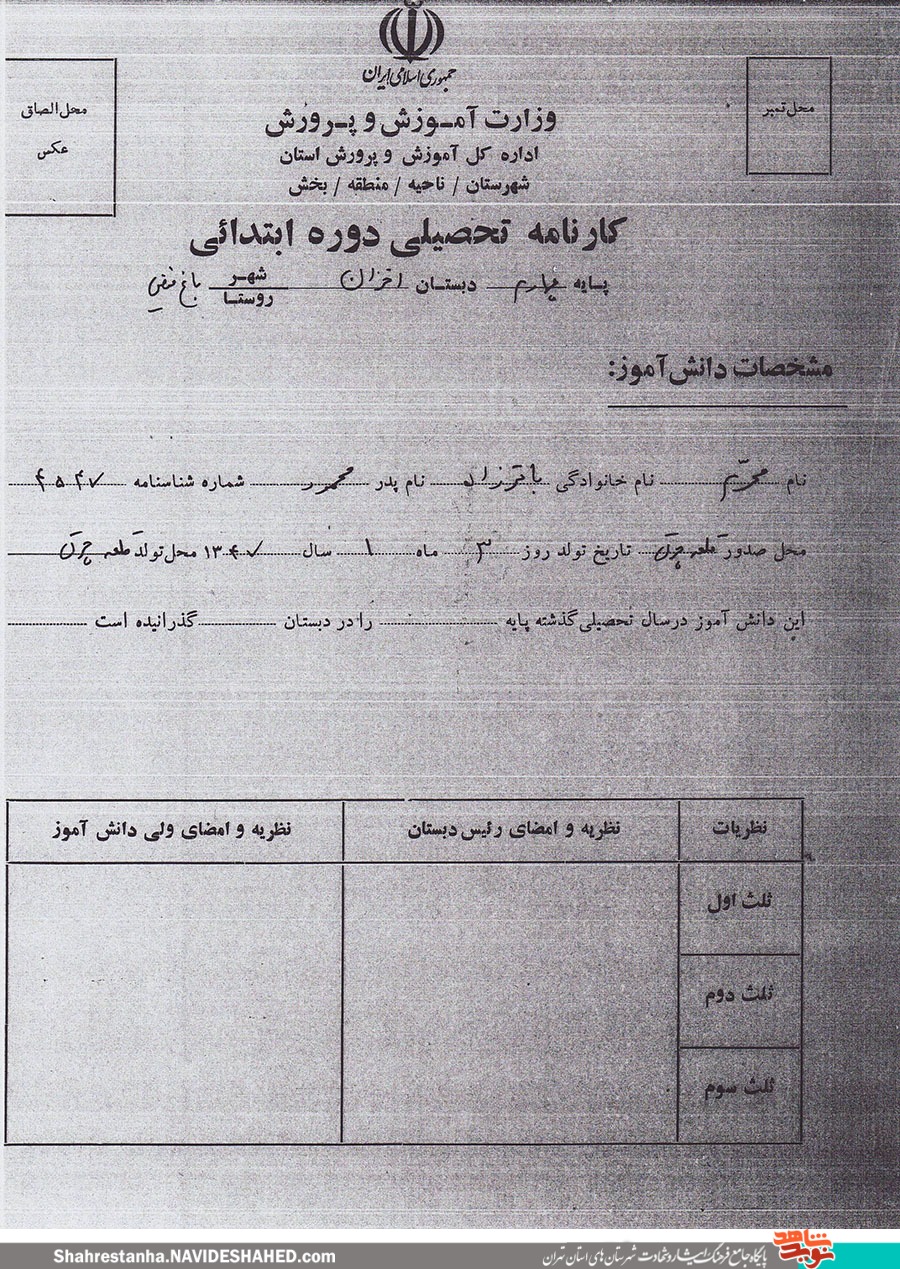 جمهوری اسلامی ایران
وزارت آمـوزش و پـرورش
اداره کل آموزش و پرورش استان
شهرستان / ناحیه / منطقه / بخش
محل الصاق
عکس
محل تمبر
کارنامه تحصیلی دوره ابتدائی
پـایه چهارم دبستـان شهـر
روستـا
مشخصات دانش‌آموز:
نام محرّم نام خانوادگی باقرزاده نام پدر محمود شماره شناسنامه ۴۵۴۷
محل صدور قلعه تاریخ تولد روز ۳ ماه ۱ سال ۱۳۴۷ محل تولد قلعه
این دانش آموز در سال تحصیلی گذشته پایه را در دبستان گذرانیده است
نظریات نظریه و امضای رئیس دبستان نظریه و امضای ولی دانش آموز
ثلث اول
ثلث دوم
ثلث سوم
نوید شاهد
پایگاه جامع فرهنگ ایثار و شهادت شهرستان های استان تهران
Shahrestanha.NAVIDESHAHED.com